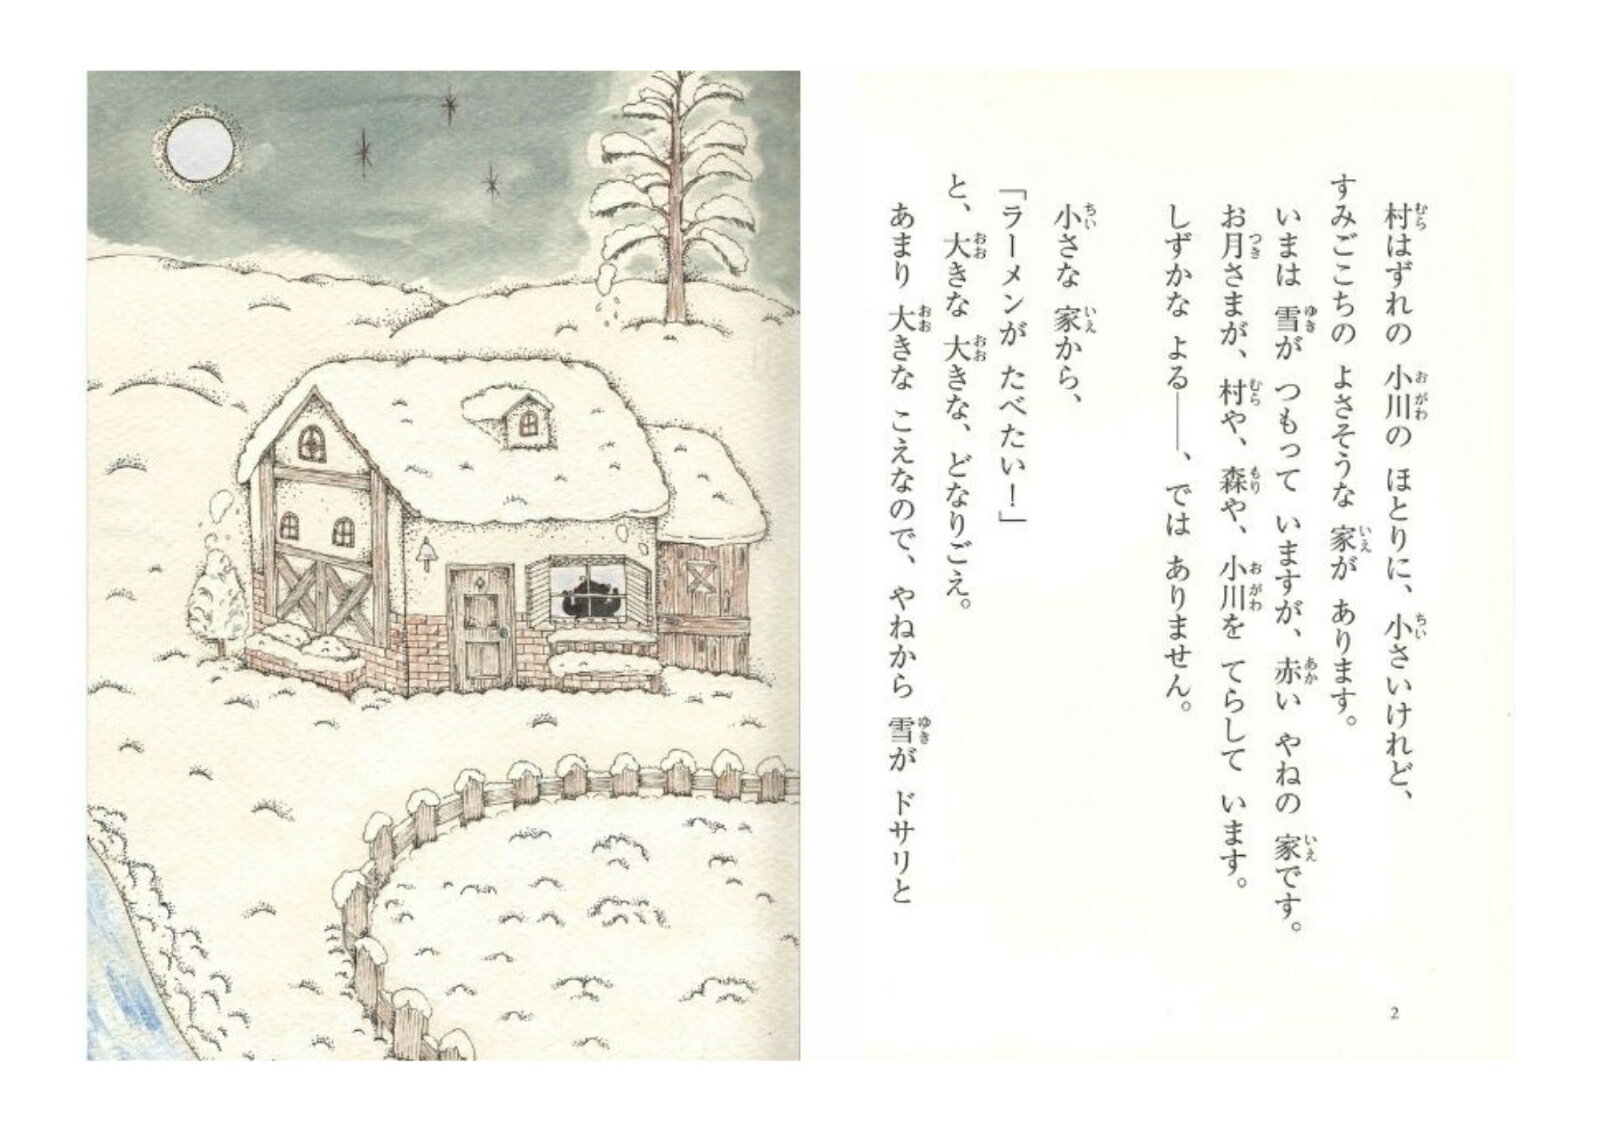 村はずれの 小川の ほとりに、小さいけれど、
すみごこちの よさそうな 家が あります。
いまは 雪が つもって いますが、赤い やねの 家です。
お月さまが、村や、森や、小川を てらして います。
しずかな よる――、では ありません。
小さな 家から、
「ラーメンが たべたい！」
と、大きな 大きな、どなりごえ。
あまり 大きな こえなので、やねから 雪が ドサリと
2